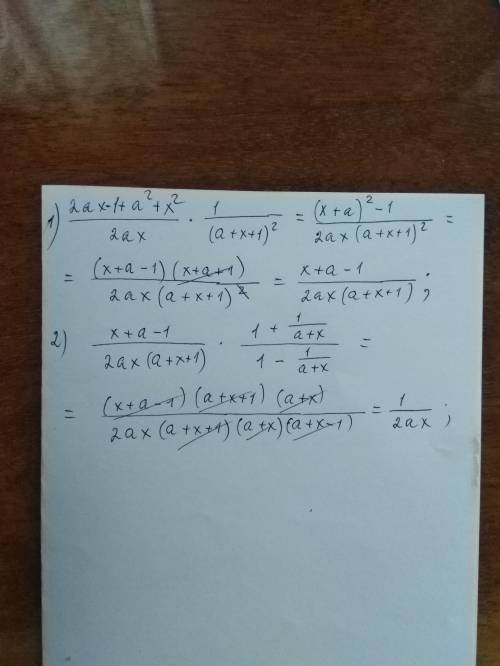 1) (2ax-1+a²+x²)/(2ax) · 1/(a+x+1)² = ((x+a)²-1)/(2ax(a+x+1)²) =
= ((x+a-1)(x+a+1))/(2ax(a+x+1)²) = (x+a-1)/(2ax(a+x+1)) ;
2) (x+a-1)/(2ax(a+x+1)) · (1 + 1/(a+x))/(1 - 1/(a+x)) =
= ((x+a-1)(a+x+1)(a+x))/(2ax(a+x+1)(a+x)(a+x-1)) = 1/(2ax) ;